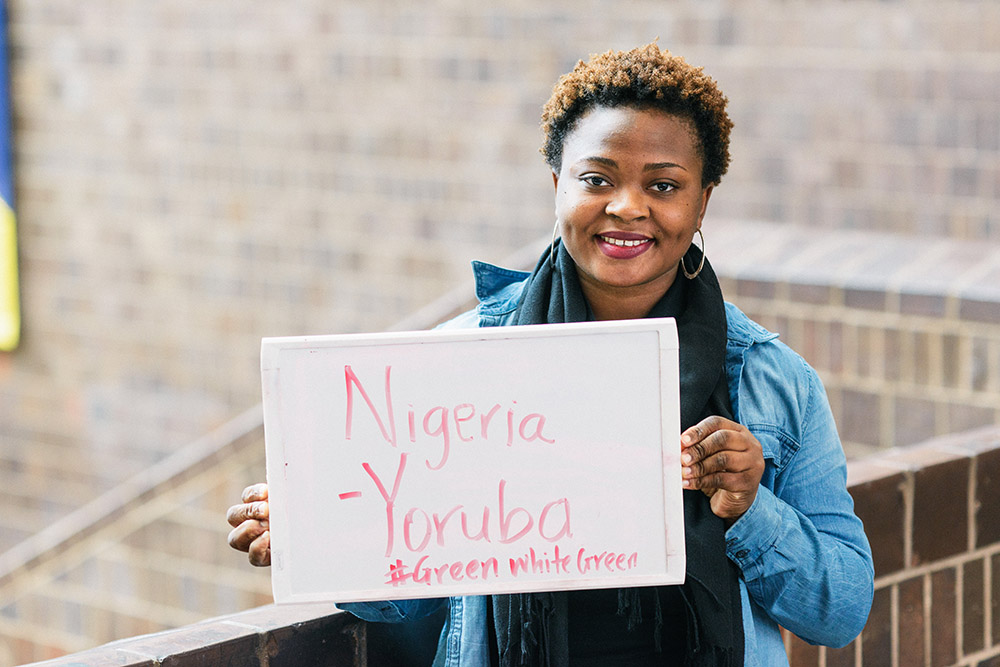 Nigeria
-Yoruba
#Green White Green